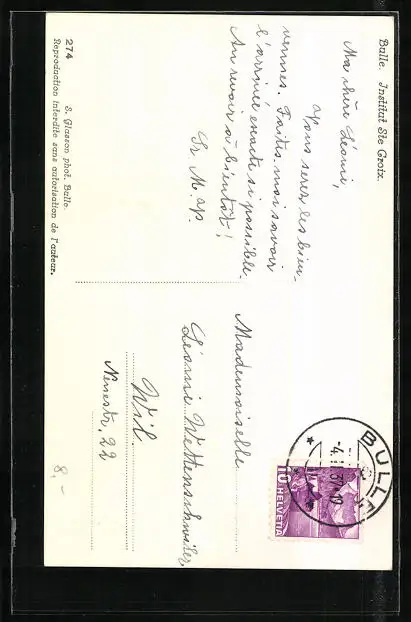 Bulle. Institut Ste Croix.
Ma chère Léonie,
Vous serez les bien-
venues. Faites moi savoir
l'arrivée exacte si possible.
Au revoir à bientôt!
Sr M. P.
274
S. Glasson phot. Bulle.
Reproduction interdite sans autorisation de l'auteur.
BULLE
10 HELVETIA
Mademoiselle
Léonie Wettenschwiler
Wil.
Neuestr. 22
8,-